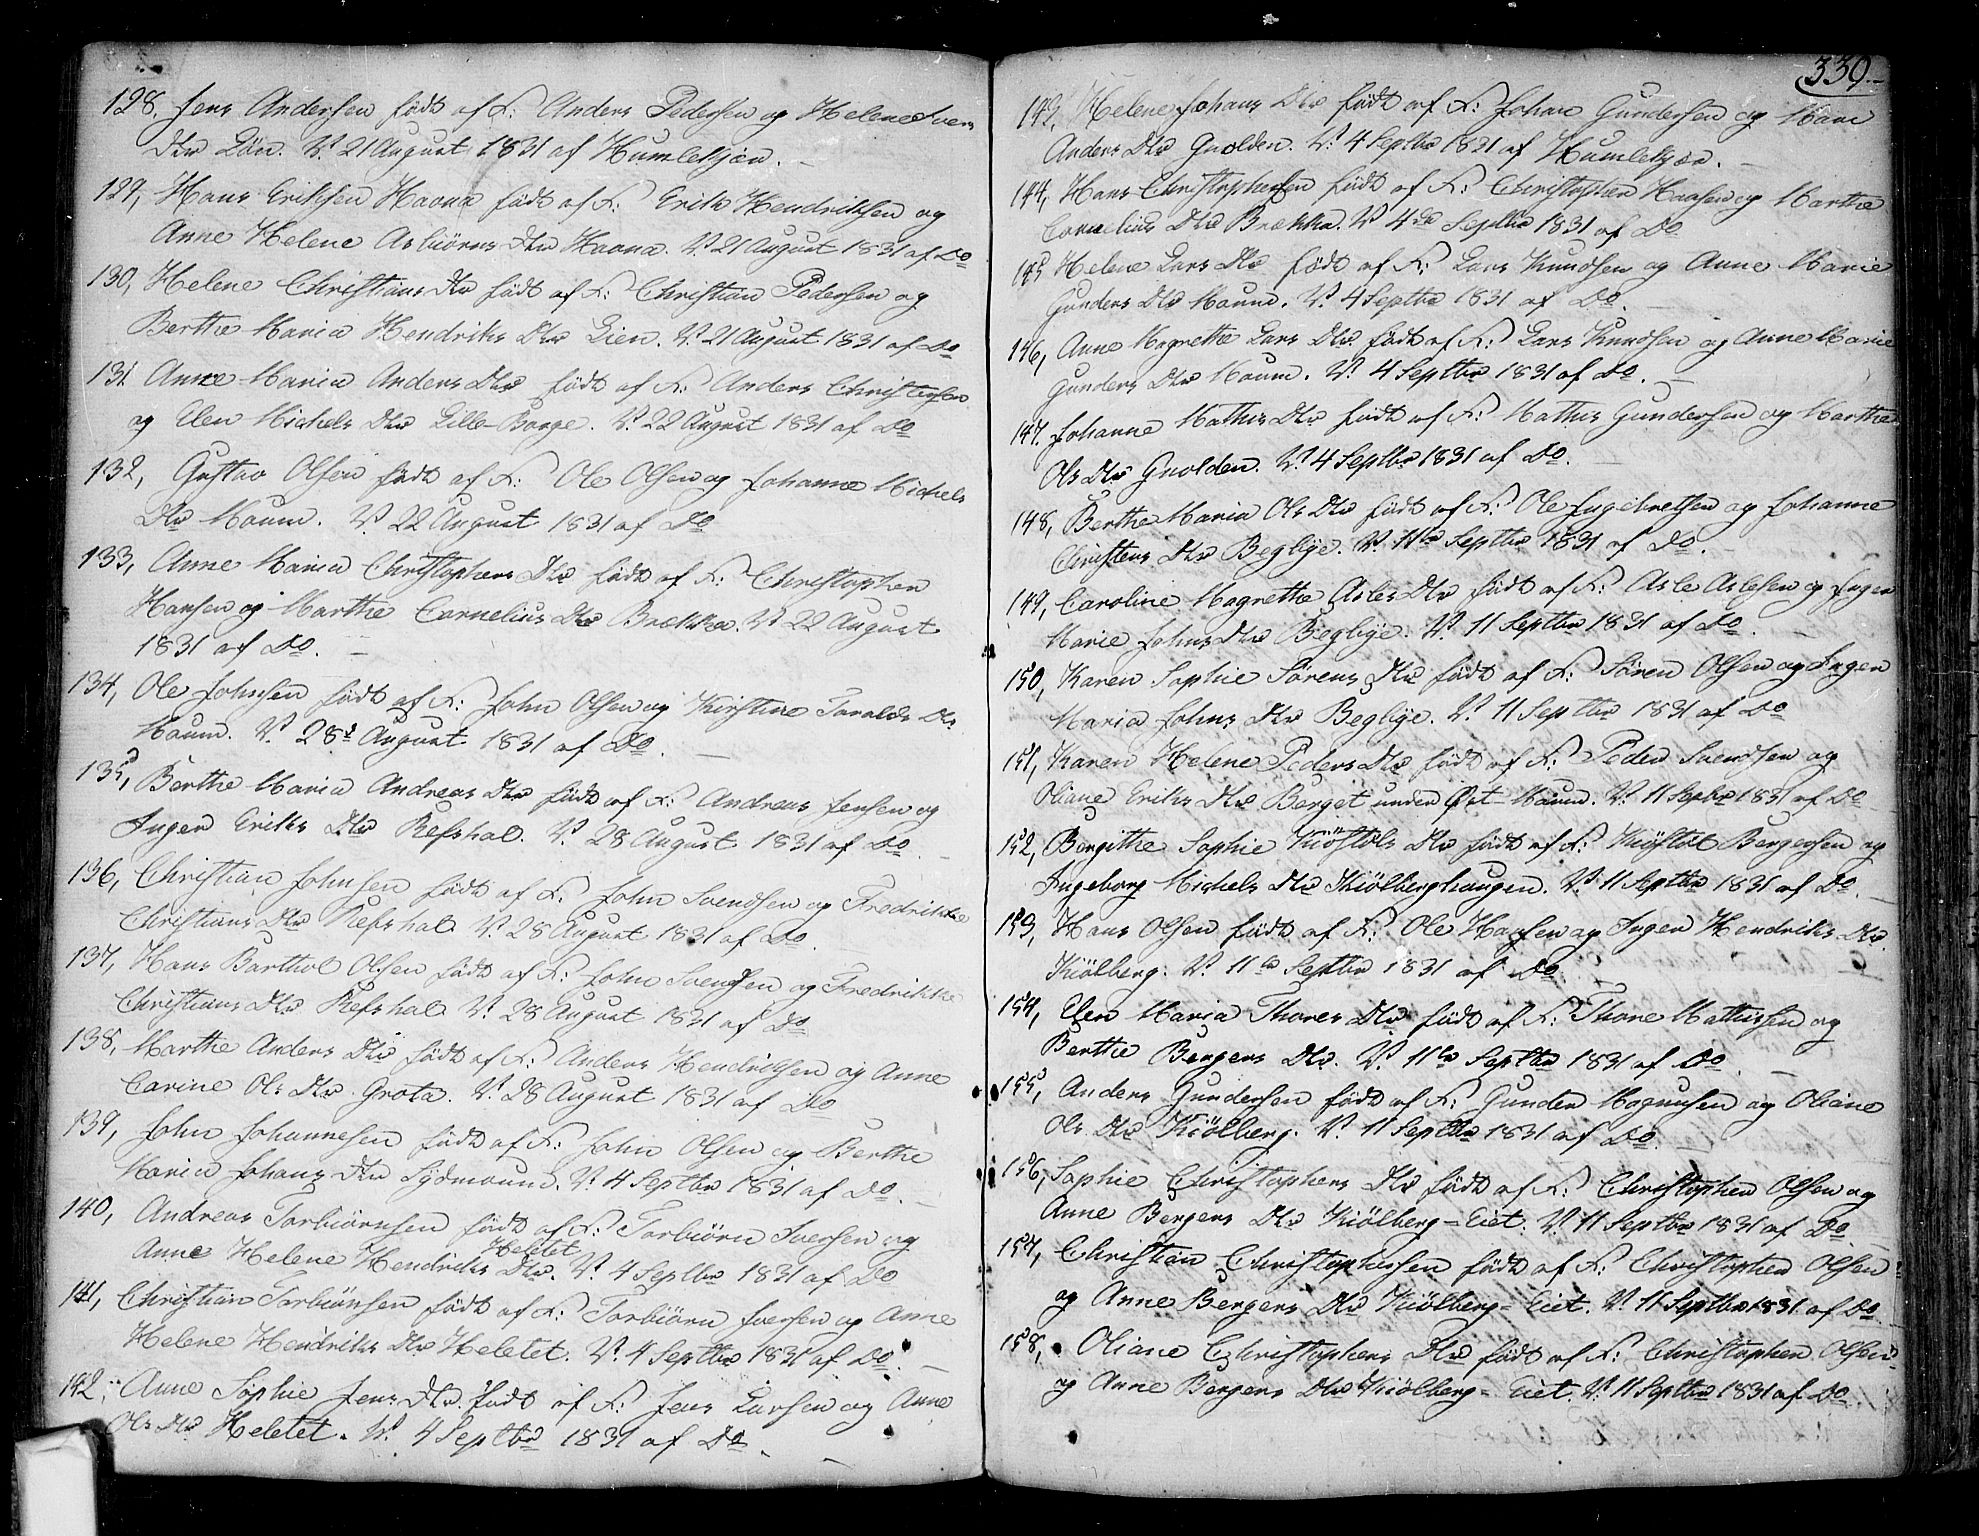 128. Jens Andersen födt af F: Anders Pedersen og Helene Svens
Dtr Lön. V. 21 August 1831 af Humlekjær. –
129, Hans Eriksen Haona födt af F: Erik Hendriksen og
Anne Helene Asbiörns Dtr Haona. V. 21 August 1831 af Do
130, Helene Christians Dtr födt af F: Christian Pedersen og
Berthe Maria Hendriks Dtr Lien. V. 21 August 1831 af Do
131 Anne Maria Anders Dtr födt af F: Anders Christensen
og Elen Michels Dtr Lille-Borge. V. 22 August 1831 af Do
132, Gustav Olsen födt af F: Ole Olsen og Johanne Michels
Dtr Maum. V. 22 August 1831 af Do
133, Anne Maria Christophers Dtr födt af F: Christopher
Hansen og Marthe Cornelius Dtr Brække. V. 22 August
1831 af Do. –
134, Ole Johnsen födt af F: John Olsen og Kirstine Taralds Dtr
Maum. V. 28 August 1831 af Do. –
135, Berthe Maria Andreas Dtr födt af F: Andreas Jensen og
Inger Eriks Dtr Refshal. V. 28 August 1831 af Do. –
136, Christian Johnsen födt af F: John Svendsen og Fredrikke
Christians Dtr Refshal. V. 28 August 1831 af Do.
137, Hans Barthol Olsen födt af F: John Svendsen og Fredrikke
Christians Dtr Refshal. V. 28 August 1831 af Do
138, Marthe Anders Dtr födt af F: Anders Hendriksen og Anne
Carine Ols Dtr Grota. V. 28 August 1831 af Do
139, John Johannesen födt af F: John Olsen og Berthe
Maria Johans Dtr Sydmoum. V. 4 Septbr 1831 af Do. –
140, Andreas Torbiörnsen födt af F: Torbiörn Iversen og
Heletet
Anne Helene Hendriks Dtr. V. 4 Septbr 1831 af Do
141, Christian Torbiönsen födt af F: Torbiörn Iversen og Anne
Helene Hendriks Dtr Heletet. V. 4 Septbr 1831 af Do. –
142, Anne Sophie Jens Dtr födt af F: Jens Larsen og Anne
Ols Dtr Heletet. V. 4 Septbr 1831 af Do. –
339.
143, Helene Johans Dtr födt af F: Johan Gundersen og Mari
Anders Dtr Gnolden. V. 4 Septbr 1831 af Humlekjær. –
144, Hans Christophersen födt af F: Christopher Hansen og Marthe
Cornelius Dtr Brække. V. 4de Septbr 1831 af Do
145 Helene Lars Dtr födt af F: Lars Knudsen og Anne Marie
Gunders Dtr Maum. V. 4 Septbr 1831 af Do. –
146, Anne Magrethe Lars Dtr födt af F: Lars Knudsen og Anne Marie
Gunders Dtr Maum. V. 4 Septbr 1831 af Do. –
147. Johanne Mathis Dtr födt af F: Mathis Gundersen og Marthe
Ols Dtr Gnolden. V. 4 Septbr 1831 af Do. –
148, Berthe Maria Ols Dtr födt af F: Ole Ingebretsen og Johanne
Christens Dtr Beglye. V. 11te Septbr 1831 af Do. –
149, Caroline Magrethe Asles Dtr födt af F: Asle Aslesen og Inger
Marie Johns Dtr Beglye. V. 11 Septbr 1831 af Do. –
150, Karen Sophie Sörens Dtr födt af F: Sören Olsen og Inger
Maria Johns Dtr Beglye. V. 11 Septbr 1831 af Do
151, Karen Helene Peders Dtr födt af F: Peder Svendsen og
Oliane Eriks Dtr Berget under Øst-Maum. V. 11 Septbr 1831 af Do –
152, Bergithe Sophie Kiöstöls Dtr födt af F: Kiöstöl Bergersen og
Ingeborg Michels Dtr Kiölberghaugen. V. 11 Septbr 1831 af Do. –
153, Hans Olsen födt af F: Ole Hansen og Inger Hendriks Dtr
Kiölberg. V. 11te Septbr 1831 af Do. –
154, Elen Maria Thores Dtr födt af F: Thore Mathisen og
Berthe Bergers Dtr. V. 11te Septbr 1831 af Do –
155, Anders Gundersen födt af F: Gunder Magnusen og Oliane
Ols Dtr Kiölberg. V. 11 Septbr 1831 af Do.
156, Sophie Christophers Dtr födt af F: Christopher Olsen og
Anne Bergers Dtr Kiölberg-Eiet. V. 11 Septbr 1831 af Do.
157, Christian Christophersen födt af F: Christopher Olsen
og Anne Bergers Dtr Kiölberg-Eiet. V. 11 Septbr 1831 af Do. –
158, Oliane Christophers Dtr födt af F: Christopher Olsen
og Anne Bergers Dtr Kiölberg-Eiet. V. 11 Septbr 1831 af Do